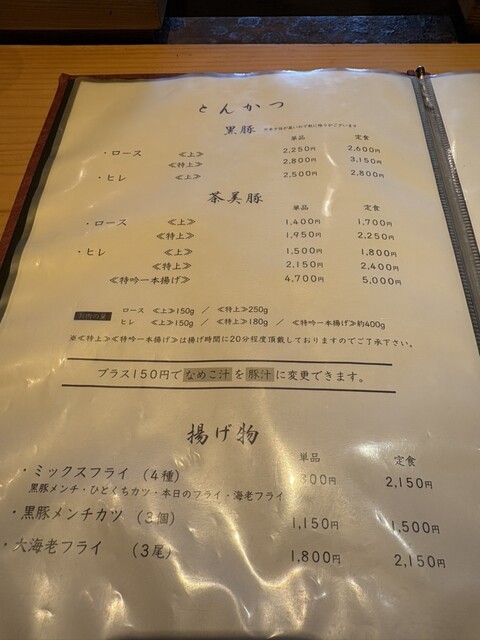 とんかつ
黒豚
単品 定食
・ロース ≪上≫ 2,250円 2,600円
≪特上≫ 2,800円 3,150円
・ヒレ ≪上≫ 2,500円 2,800円
茶美豚
単品 定食
・ロース ≪上≫ 1,400円 1,700円
≪特上≫ 1,950円 2,250円
・ヒレ ≪上≫ 1,500円 1,800円
≪特上≫ 2,150円 2,400円
≪特吟一本揚げ≫ 4,700円 5,000円
お肉の量 ロース ≪上≫150g / ≪特上≫250g
ヒレ ≪上≫150g / ≪特上≫180g / ≪特吟一本揚げ≫約400g
※≪特上≫≪特吟一本揚げ≫は揚げ時間に20分程度頂戴しておりますのでご了承下さい。
プラス150円でなめこ汁を豚汁に変更できます。
揚げ物
単品 定食
・ミックスフライ (4種) 800円 2,150円
黒豚メンチ・ひとくちカツ・本日のフライ・海老フライ
・黒豚メンチカツ (3個) 1,150円 1,500円
・大海老フライ (3尾) 1,800円 2,150円